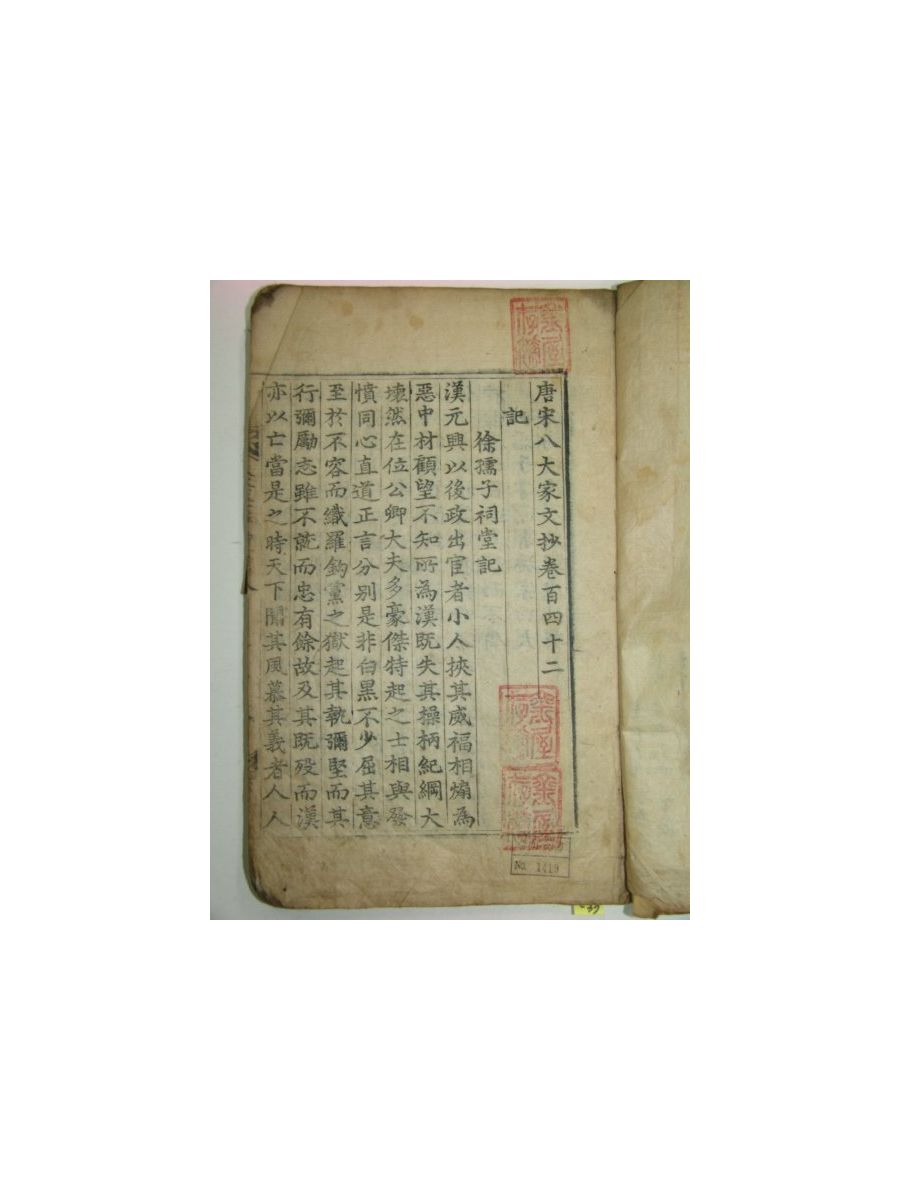 唐宋八大家文抄卷百四十二
記
徐孺子祠堂記
漢元興以後政出宦者小人挾其威福相煽為
惡中材顧望不知所為漢既失其操柄紀綱大
壞然在位公卿大夫多豪傑特起之士相與發
憤同心直道正言分別是非白黑不少屈其意
至於不容而織羅鈎黨之獄起其執彌堅而其
行彌勵志雖不就而忠有餘故及其既歿而漢
亦以亡當是之時天下聞其風慕其義者人人
No. 1419